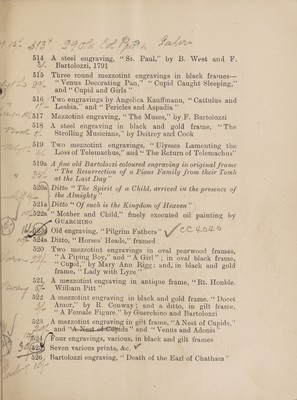 514 A steel engraving, "St. Paul," by B. West and F.
Bartolozzi, 1791
515 Three round mezzotint engravings in black frames—
"Venus Decorating Pan," "Cupid Caught Sleeping,"
and "Cupid and Girls"
516 Two engravings by Angelica Kauffmann, "Cattulus and
Lesbia," and "Pericles and Aspadia"
517 Mezzotint engraving, "The Muses," by F. Bartolozzi
518 A steel engraving in black and gold frame, "The
Strolling Musicians," by Deitrey and Cook
519 Two mezzotint engravings, "Ulysses Lamenting the
Loss of Telemachus," and "The Return of Telemachus"
519a A fine old Bartolozzi coloured engraving in original frame
"The Resurrection of a Pious Family from their Tomb
at the Last Day"
520a Ditto "The Spirit of a Child, arrived in the presence of
the Almighty"
521a Ditto "Of such is the Kingdom of Heaven"
522a "Mother and Child," finely executed oil painting by
GUARCHINO
Old engraving, "Pilgrim Fathers" CC4040
524a Ditto, "Horses' Heads," framed
520 Two mezzotint engravings in oval pearwood frames,
"A Piping Boy," and "A Girl"; in oval black frame,
"Cupid," by Mary Ann Rigg; and, in black and gold
frame, "Lady with Lyre"
521 A mezzotint engraving in antique frame, "Rt. Honble.
William Pitt"
522 A mezzotint engraving in black and gold frame, "Docet
Amor," by R. Conway; and a ditto, in gilt frame,
"A Female Figure," by Guerchino and Bartolozzi
523 A mezzotint engraving in gilt frame, "A Nest of Cupids,"
and "A Nest of Cupids" and "Venus and Adonis"
524 Four engravings, various, in black and gilt frames
525 Seven various prints, &c.
526 Bartolozzi engraving, "Death of the Earl of Chatham"